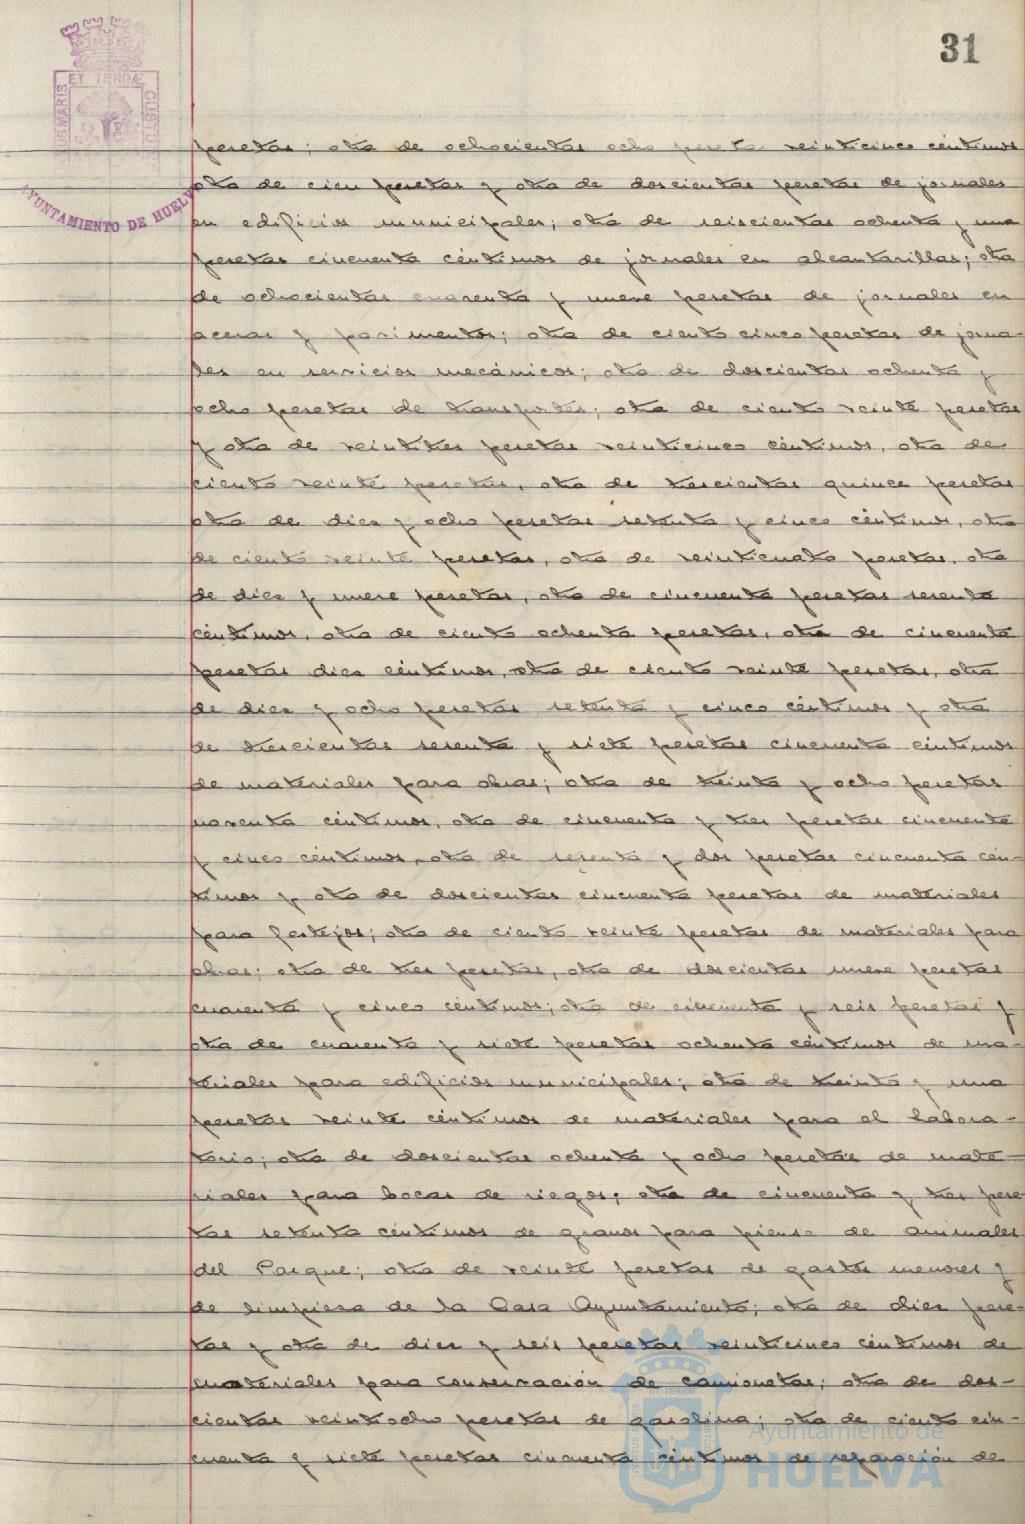 31
PORTUS MARIS ET TERRÆ CUSTODIA
AYUNTAMIENTO DE HUELVA
pesetas; otra de ochocientas ocho pesetas veinticinco céntimos
otra de cien pesetas y otra de doscientas pesetas de jornales
en edificios municipales; otra de seiscientas ochenta y una
pesetas cincuenta céntimos de jornales en alcantarillas; otra
de ochocientas cuarenta y nueve pesetas de jornales en
aceras y pavimentos; otra de ciento cinco pesetas de jorna-
les en servicios mecánicos; otra de doscientas ochenta y
ocho pesetas de transportes; otra de ciento veinte pesetas
y otra de veintitres pesetas veinticinco céntimos, otra de
ciento veinte pesetas, otra de trescientas quince pesetas
otra de diez y ocho pesetas setenta y cinco céntimos, otra
de ciento veinte pesetas, otra de veinticuatro pesetas, otra
de diez y nueve pesetas, otra de cincuenta pesetas sesenta
céntimos, otra de ciento ochenta pesetas, otra de cincuenta
pesetas diez céntimos, otra de ciento veinte pesetas, otra
de diez y ocho pesetas setenta y cinco céntimos y otra
de trescientas sesenta y siete pesetas cincuenta céntimos
de materiales para obras; otra de treinta y ocho pesetas
noventa céntimos, otra de cincuenta y tres pesetas cincuenta
y cinco céntimos, otra de sesenta y dos pesetas cincuenta cén-
timos y otra de doscientas cincuenta pesetas de materiales
para festejos; otra de ciento veinte pesetas de materiales para
obras; otra de tres pesetas, otra de doscientas nueve pesetas
cuarenta y cinco céntimos; otra de cincuenta y seis pesetas y
otra de cuarenta y siete pesetas ochenta céntimos de ma-
teriales para edificios municipales; otra de treinta y una
pesetas veinte céntimos de materiales para el labora-
torio; otra de doscientas ochenta y ocho pesetas de mate-
riales para bocas de riegos; otra de cincuenta y tres pese-
tas setenta céntimos de granos para pienso de animales
del Parque; otra de veinte pesetas de gastos menores y
de limpieza de la Casa Ayuntamiento; otra de diez pese-
tas y otra de diez y seis pesetas veinticinco céntimos de
materiales para conservación de camionetas; otra de dos-
cientas veintiocho pesetas de gasolina; otra de ciento cin-
cuenta y siete pesetas cincuenta céntimos de reparación de
Ayuntamiento de
HUELVA